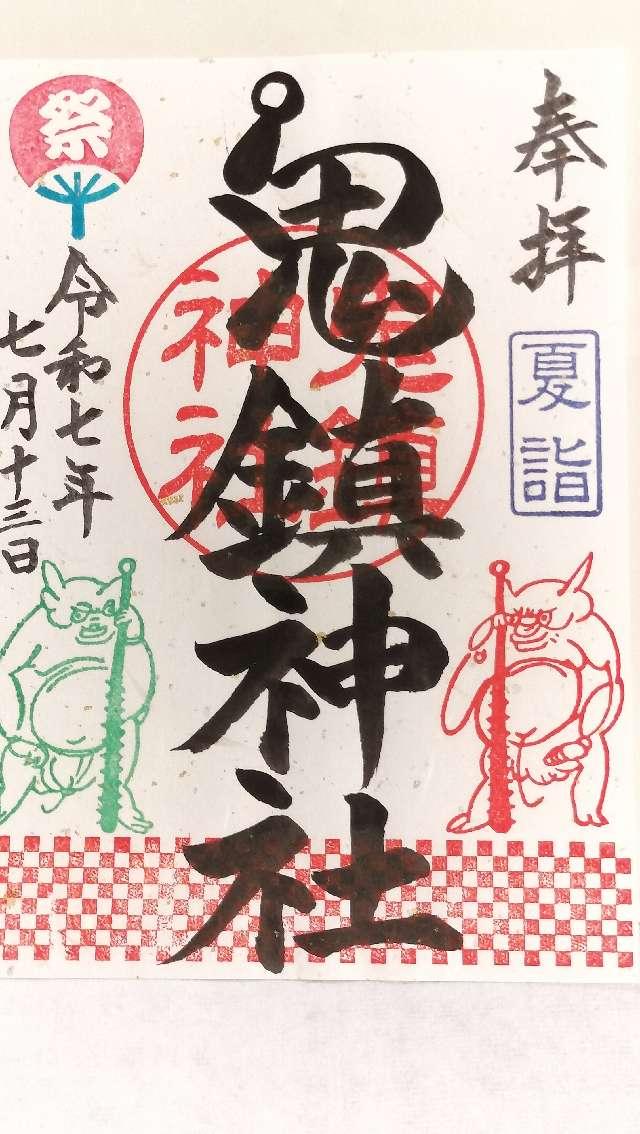 奉拝
夏詣
鬼鎮神社
鬼鎮
神社
祭
令和七年
七月十三日